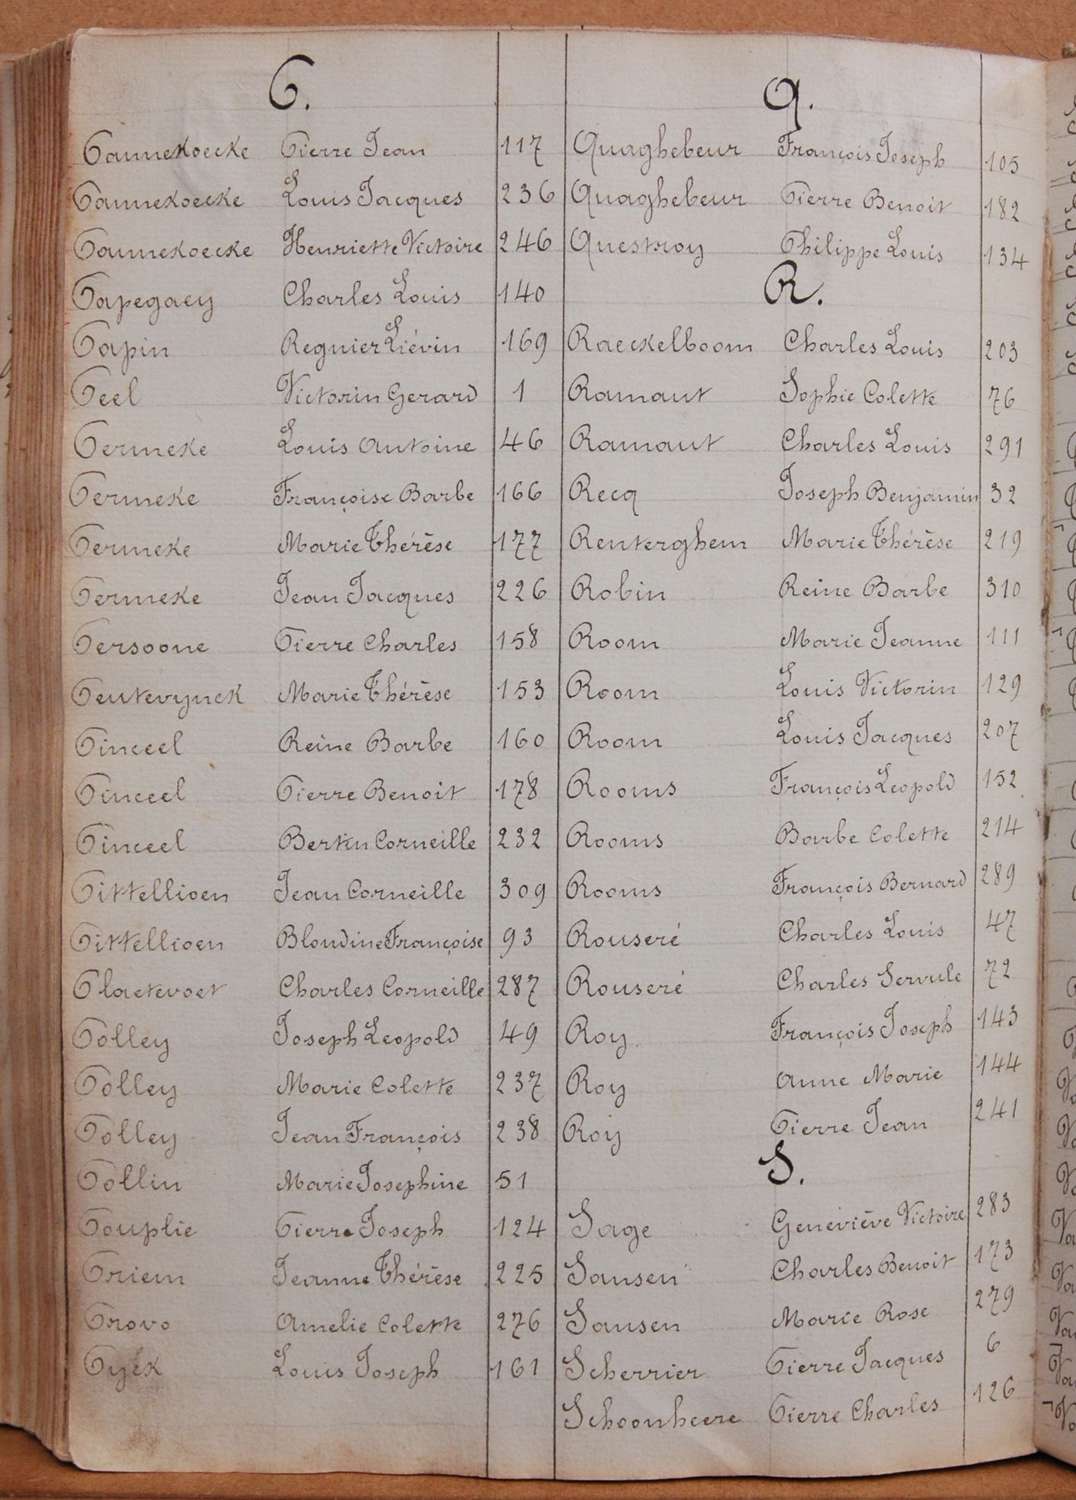 P.
Pannekoecke Pierre Jean 117
Pannekoecke Louis Jacques 236
Pannekoecke Henriette Victoire 246
Papegaey Charles Louis 140
Papin Regnier Liévin 169
Peel Victorin Gerard 1
Permeke Louis Antoine 46
Permeke Françoise Barbe 166
Permeke Marie Thérèse 177
Permeke Jean Jacques 226
Persoone Pierre Charles 158
Peutevynck Marie Thérèse 153
Pinceel Reine Barbe 160
Pinceel Pierre Benoit 178
Pinceel Bertin Corneille 232
Pittellioen Jean Corneille 309
Pittellioen Blondine Françoise 93
Plaetevoet Charles Corneille 287
Polley Joseph Leopold 49
Polley Marie Colette 237
Polley Jean François 238
Pollin Marie Josephine 51
Pouplie Pierre Joseph 124
Priem Jeanne Thérèse 225
Provo Amelie Colette 276
Pyék Louis Joseph 161
Q.
Quaghebeur François Joseph 105
Quaghebeur Pierre Benoit 182
Questroy Philippe Louis 134
R.
Raeckelboom Charles Louis 203
Ramaut Sophie Colette 76
Ramaut Charles Louis 291
Recq Joseph Benjamin 32
Renterghem Marie Thérèse 219
Robin Reine Barbe 310
Room Marie Jeanne 111
Room Louis Victorin 129
Room Louis Jacques 207
Rooms François Leopold 152
Rooms Barbe Colette 214
Rooms François Bernard 289
Rouseré Charles Louis 47
Rouseré Charles Servule 72
Roy François Joseph 143
Roy Anne Marie 144
Roy Pierre Jean 241
S.
Sage Geneviève Victoire 283
Sansen Charles Benoit 173
Sansen Marie Rose 279
Scherrier Pierre Jacques 6
Schoonheere Pierre Charles 126